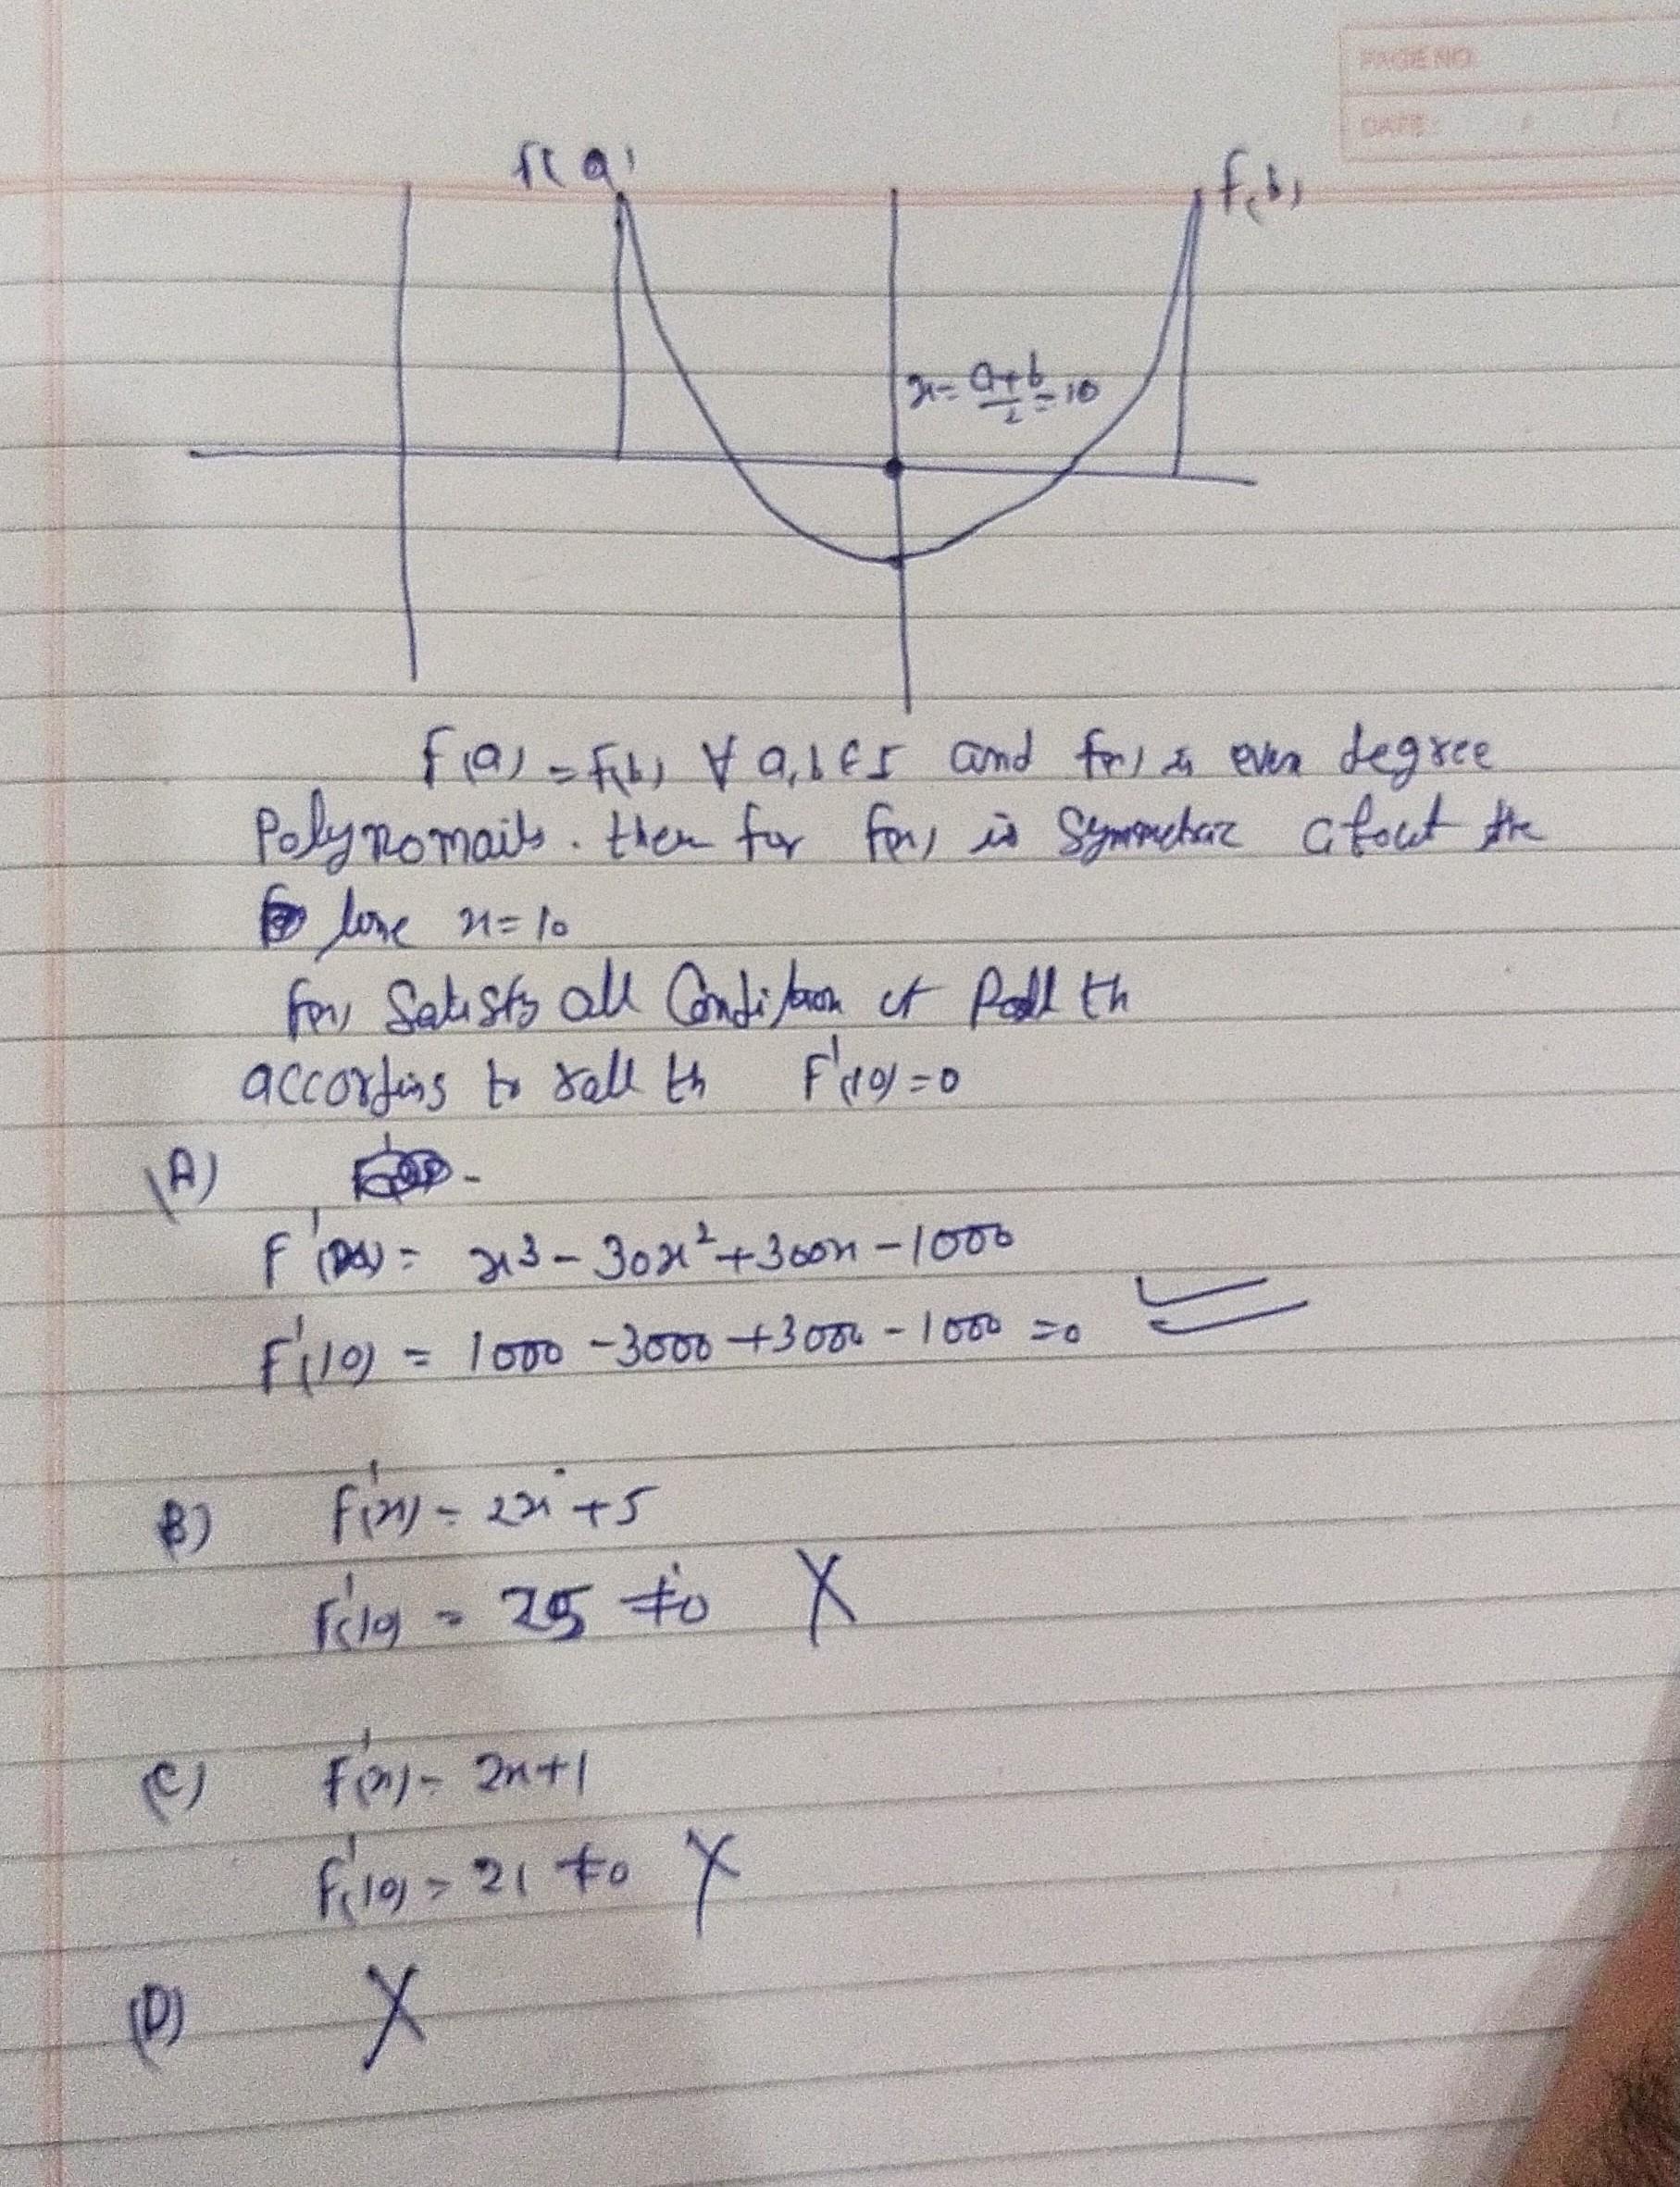 PAGE NO.
DATE:
f(a)
f(b)
x = a+b/2 = 10
f(a) = f(b) ∀ a,b ∈ I and f(x) is even degree
Polynomails. then for f(x) is Symmetric about the
line x=10
f(x) Satisfy all Condition of Roll th
according to roll th F'(10)=0
(A)
F'(x) = x³ - 30x² + 300x - 1000
F'(10) = 1000 - 3000 + 3000 - 1000 = 0
B) F'(x) = 2x + 5
F'(10) = 25 ≠ 0 X
(C) F'(x) = 2x+1
F'(10) = 21 ≠ 0 X
(D) X